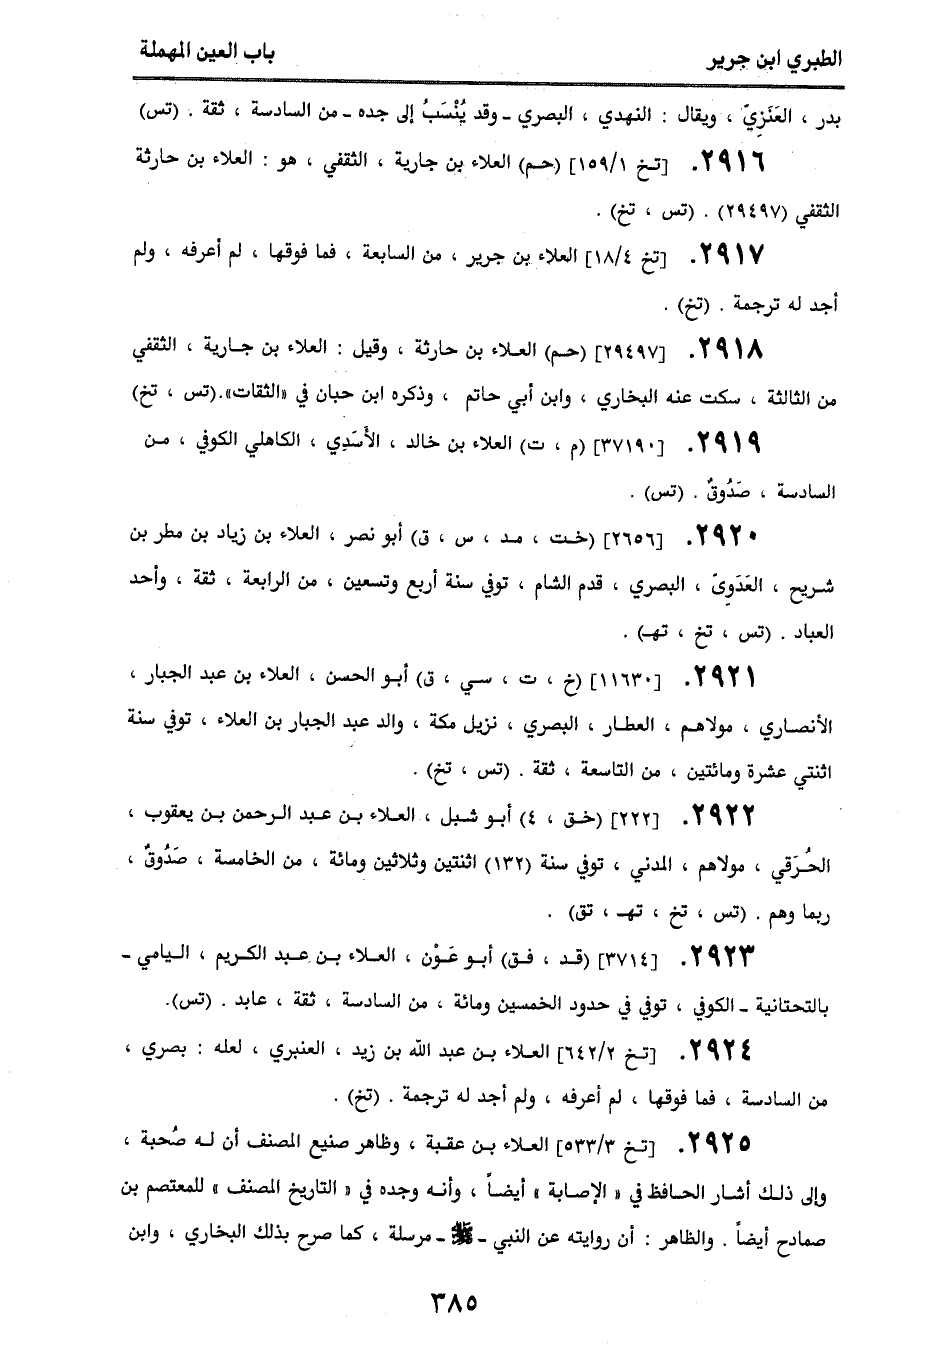 الطبري ابن جرير باب العين المهملة
بدر ، العَنَزِيّ ، ويقال : النهدي ، البصري ـ وقد يُنْسَبُ إلى جده ـ من السادسة ، ثقة . (تس)
٢٩١٦. [تخ ١/ ١٥٩] (حم) العلاء بن جارية ، الثقفي ، هو : العلاء بن حارثة
الثقفي (٢٩٤٩٧) . (تس ، تخ) .
٢٩١٧. [تخ ٤/ ١٨] العلاء بن جرير ، من السابعة ، فما فوقها ، لم أعرفه ، ولم
أجد له ترجمة . (تخ) .
٢٩١٨. [٢٩٤٩٧] (حم) العلاء بن حارثة ، وقيل : العلاء بن جارية ، الثقفي
من الثالثة ، سكت عنه البخاري ، وابن أبي حاتم ، وذكره ابن حبان في «الثقات».(تس ، تخ)
٢٩١٩. [٣٧١٩٠] (م ، ت) العلاء بن خالد ، الأَسَدِي ، الكاهلي الكوفي ، من
السادسة ، صَدُوقٌ . (تس) .
٢٩٢٠. [٢٦٥٦] (خت ، مد ، س ، ق) أبو نصر ، العلاء بن زياد بن مطر بن
شريح ، العَدَوِىّ ، البصري ، قدم الشام ، توفي سنة أربع وتسعين ، من الرابعة ، ثقة ، وأحد
العباد . (تس ، تخ ، تهـ) .
٢٩٢١. [١١٦٣٠] (خ ، ت ، سي ، ق) أبو الحسن ، العلاء بن عبد الجبار ،
الأنصاري ، مولاهم ، العطار ، البصري ، نزيل مكة ، والد عبد الجبار بن العلاء ، توفي سنة
اثنتي عشرة ومائتين ، من التاسعة ، ثقة . (تس ، تخ) .
٢٩٢٢. [٢٢٢] (خق ، ٤) أبو شبل ، العلاء بن عبد الرحمن بن يعقوب ،
الحُرَقي ، مولاهم ، المدني ، توفي سنة (١٣٢) اثنتين وثلاثين ومائة ، من الخامسة ، صَدُوقٌ ،
ربما وهم . (تس ، تخ ، تهـ ، تق) .
٢٩٢٣. [٣٧١٤] (قد ، فق) أبو عَوْن ، العلاء بن عبد الكريم ، اليامي ـ
بالتحتانية ـ الكوفي ، توفي في حدود الخمسين ومائة ، من السادسة ، ثقة ، عابد . (تس).
٢٩٢٤. [تخ ٢/ ٦٤٢] العلاء بن عبد الله بن زيد ، العنبري ، لعله : بصري ،
من السادسة ، فما فوقها ، لم أعرفه ، ولم أجد له ترجمة . (تخ) .
٢٩٢٥. [تخ ٣/ ٥٣٣] العلاء بن عقبة ، وظاهر صنيع المصنف أن له صُحبة ،
وإلى ذلك أشار الحافظ في « الإصابة » أيضاً ، وأنه وجده في « التاريخ المصنف » للمعتصم بن
صمادح أيضاً . والظاهر : أن روايته عن النبي ـ ﷺ ـ مرسلة ، كما صرح بذلك البخاري ، وابن
٣٨٥